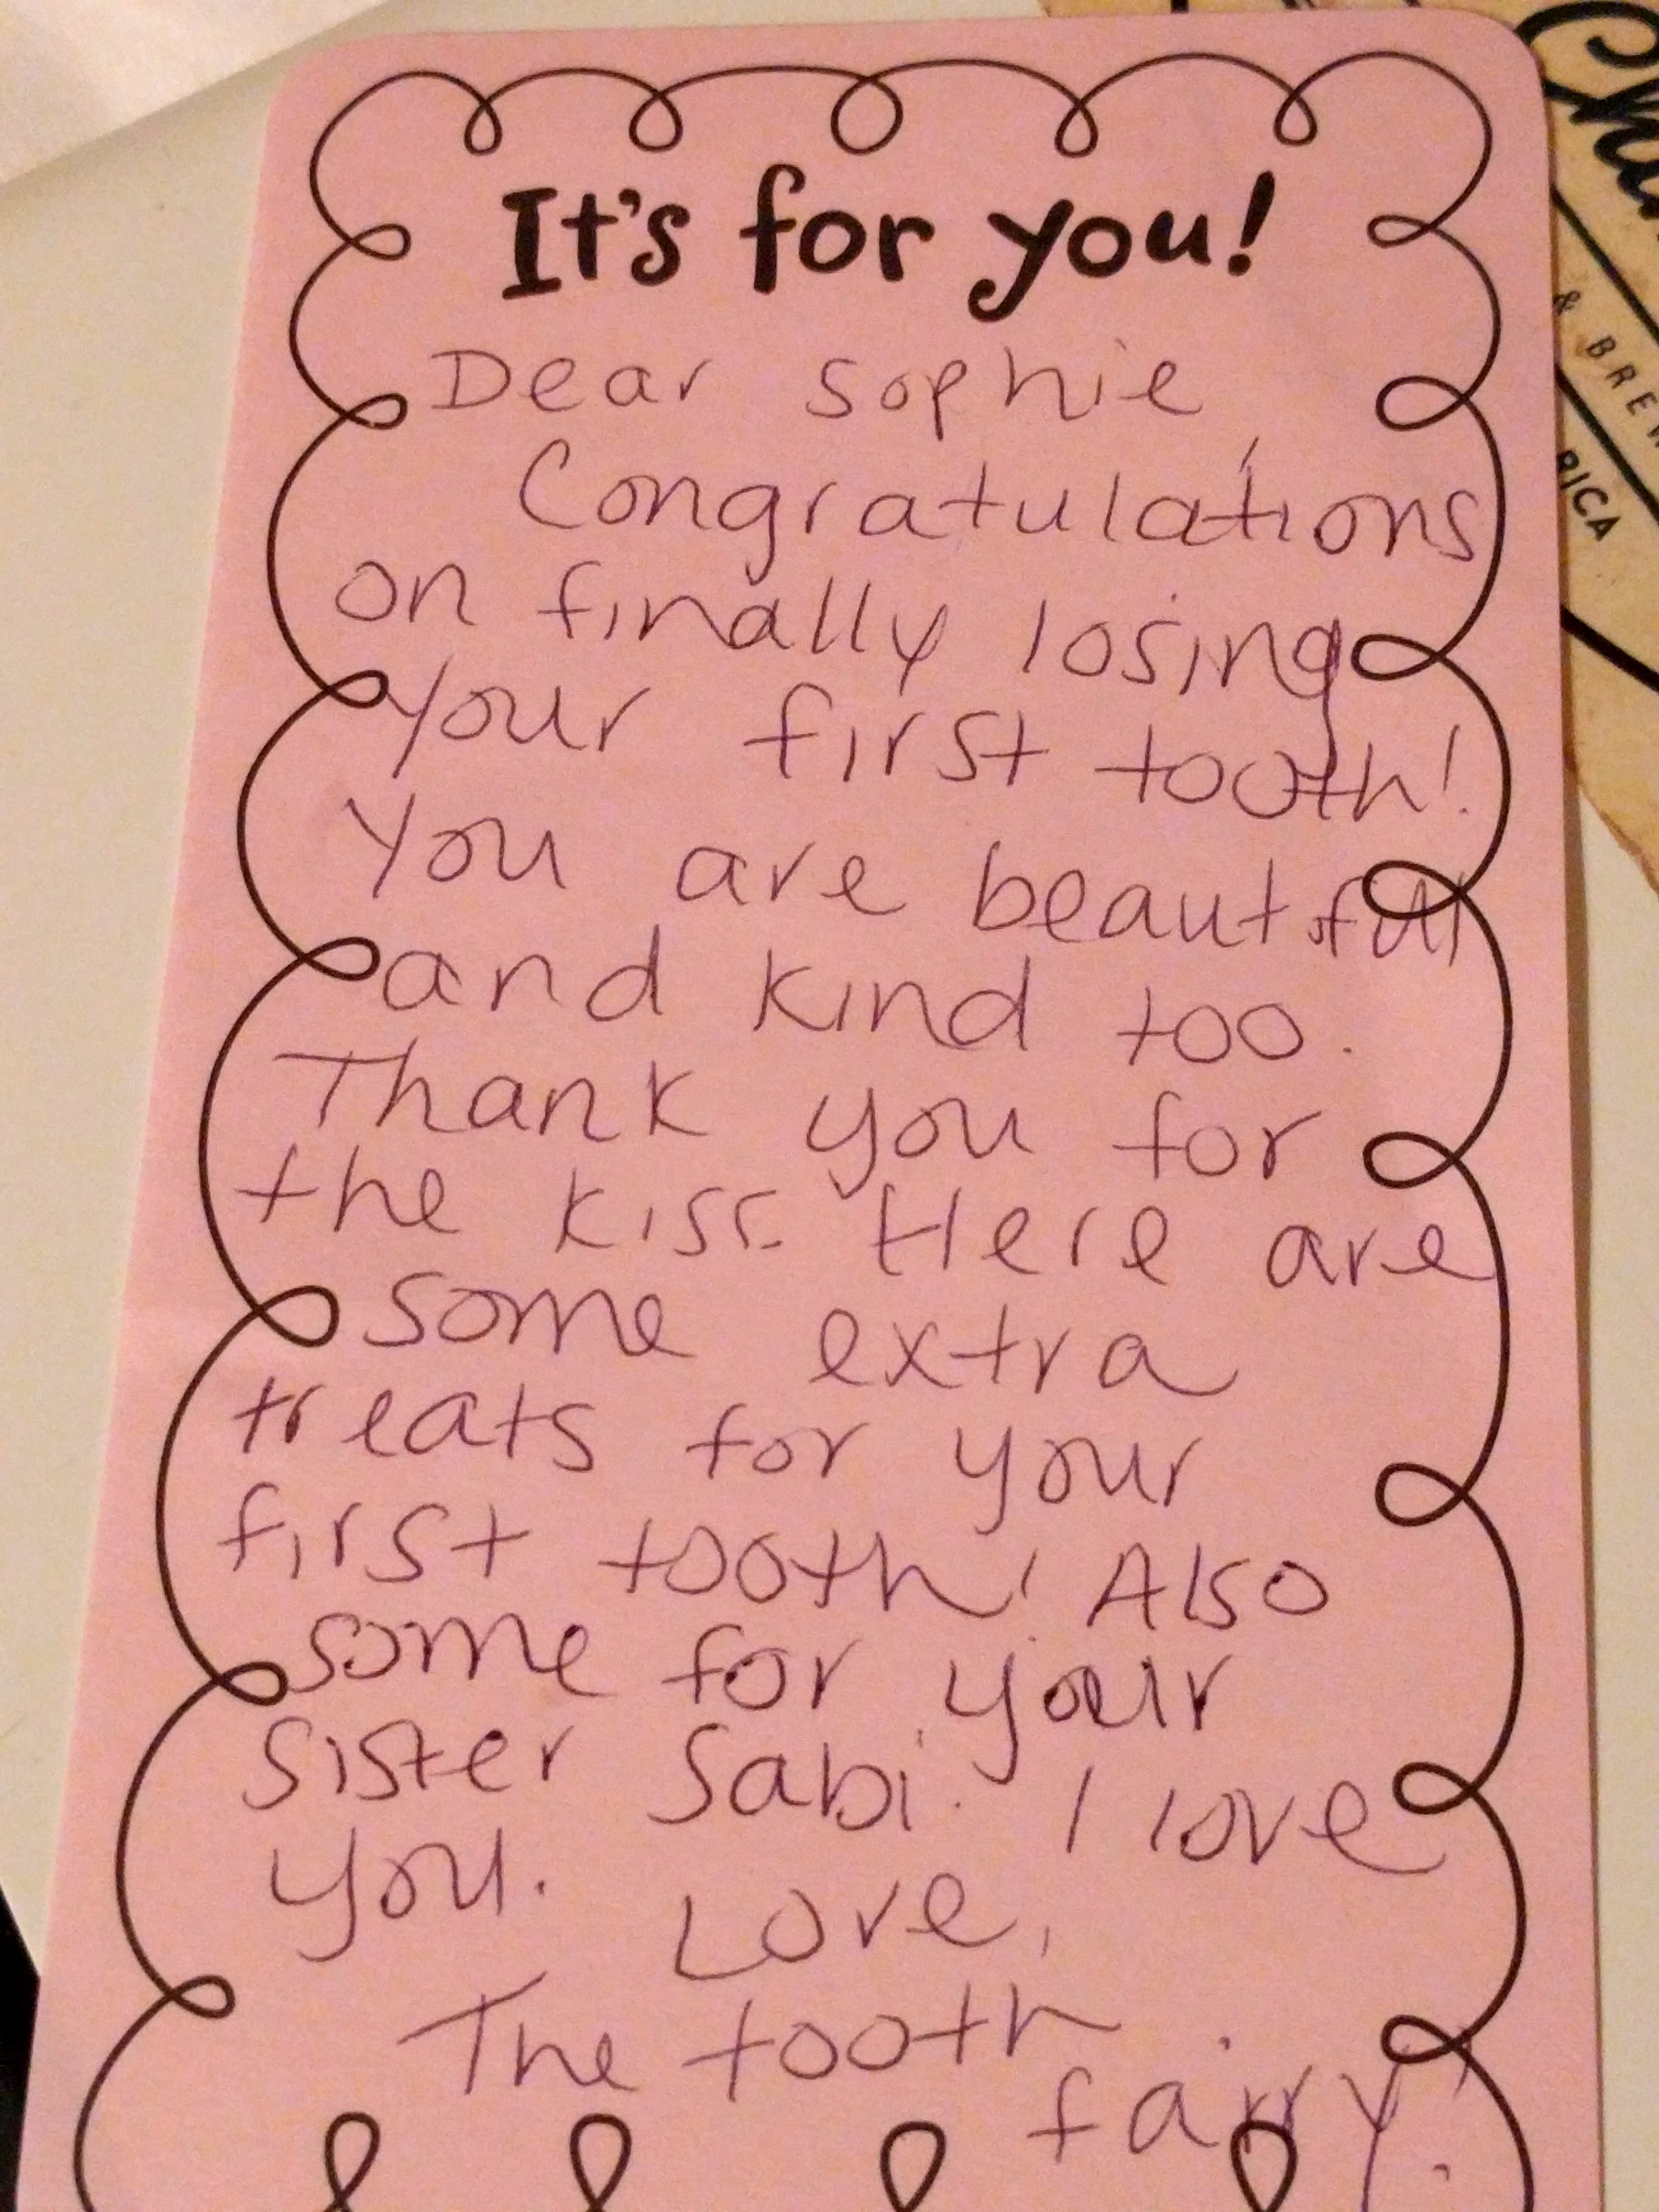 It's for you!
Dear Sophie
Congratulations
on finally losing
your first tooth!
You are beautiful
and kind too.
Thank you for
the kiss. Here are
some extra
treats for your
first tooth! Also
some for your
sister Sabi. I love
you. Love,
The tooth
fairy!
& BRE
RICA